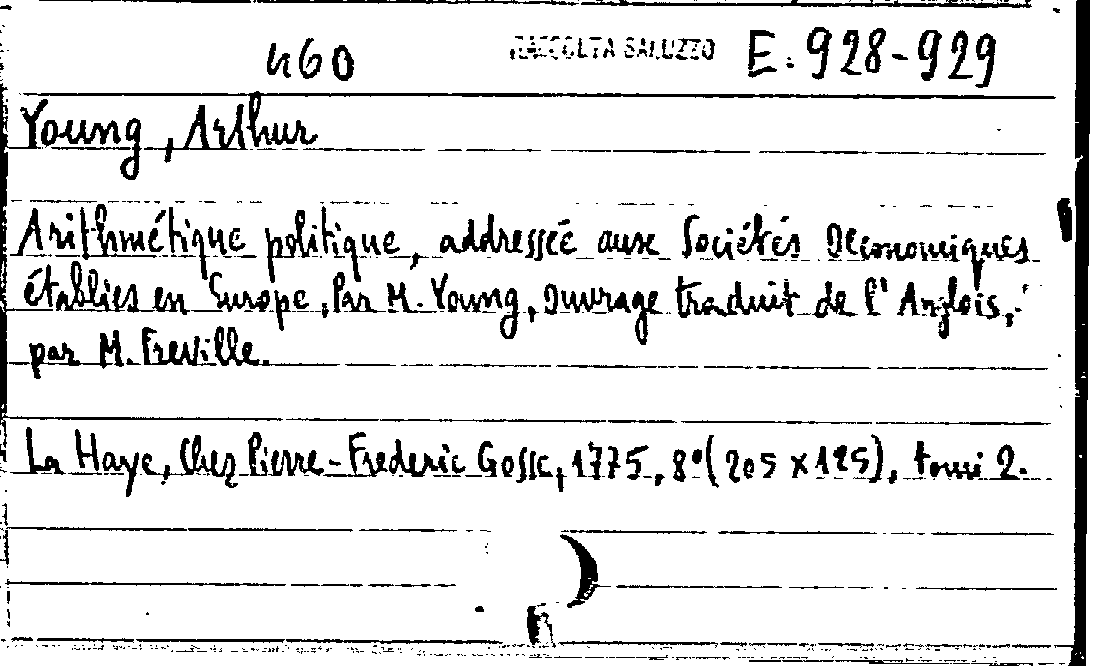 460 RACCOLTA SALUZZO E. 928-929
Young, Arthur
Arithmétique politique, addressée aux Sociétés Oeconomiques
établies en Europe, Par M. Young, Ouvrage traduit de l'Anglois,
par M. Freville.
La Haye, Chez Pierre-Frederic Gosse, 1775, 8° (205 x 125), tomi 2.